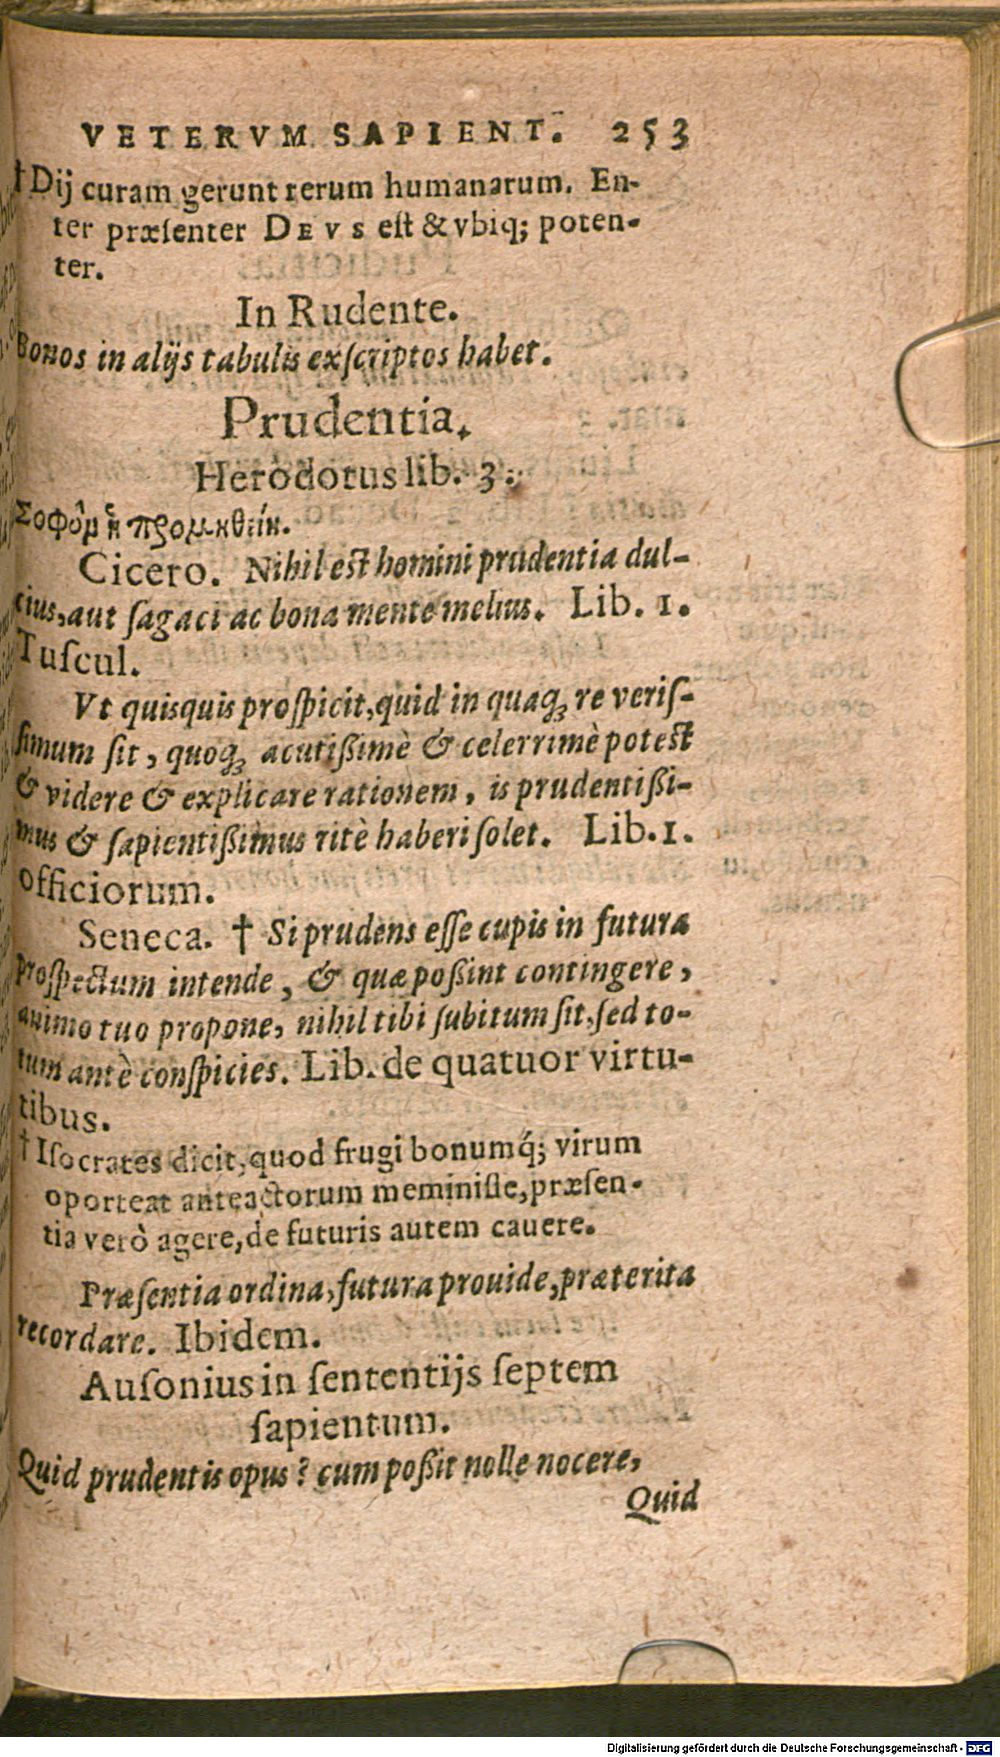 VETERVM SAPIENT. 253
†Dij curam gerunt rerum humanarum. En-
ter præſenter DEVS eſt & vbiq; poten-
ter.
In Rudente.
Bonos in alijs tabulis exſcriptos habet.
Prudentia.
Herodotus lib. 3.
Σοφὸμ ἡ προμηθείη.
Cicero. Nihil eſt homini prudentia dul-
cius, aut ſagaci ac bona mente melius. Lib. 1.
Tuſcul.
Vt quisquis proſpicit, quid in quaq; re veriſ-
ſimum ſit, quoq; acutißimè & celerrimè poteſt
& videre & explicare rationem, is prudentißi-
mus & ſapientißimus ritè haberi ſolet. Lib. 1.
Officiorum.
Seneca. † Si prudens eſſe cupis in futura
proſpectum intende, & quæ poßint contingere,
animo tuo propone, nihil tibi ſubitum ſit, ſed to-
tum antè conſpicies. Lib. de quatuor virtu-
tibus.
† Iſocrates dicit, quod frugi bonumq́; virum
oporteat anteactorum meminiſſe, præſen-
tia verò agere, de futuris autem cauere.
Præſentia ordina, futura prouide, præterita
recordare. Ibidem.
Auſonius in ſententijs ſeptem
ſapientum.
Quid prudentis opus? cum poßit nolle nocere,
Quid
Digitalisierung gefördert durch die Deutsche Forschungsgemeinschaft - DFG